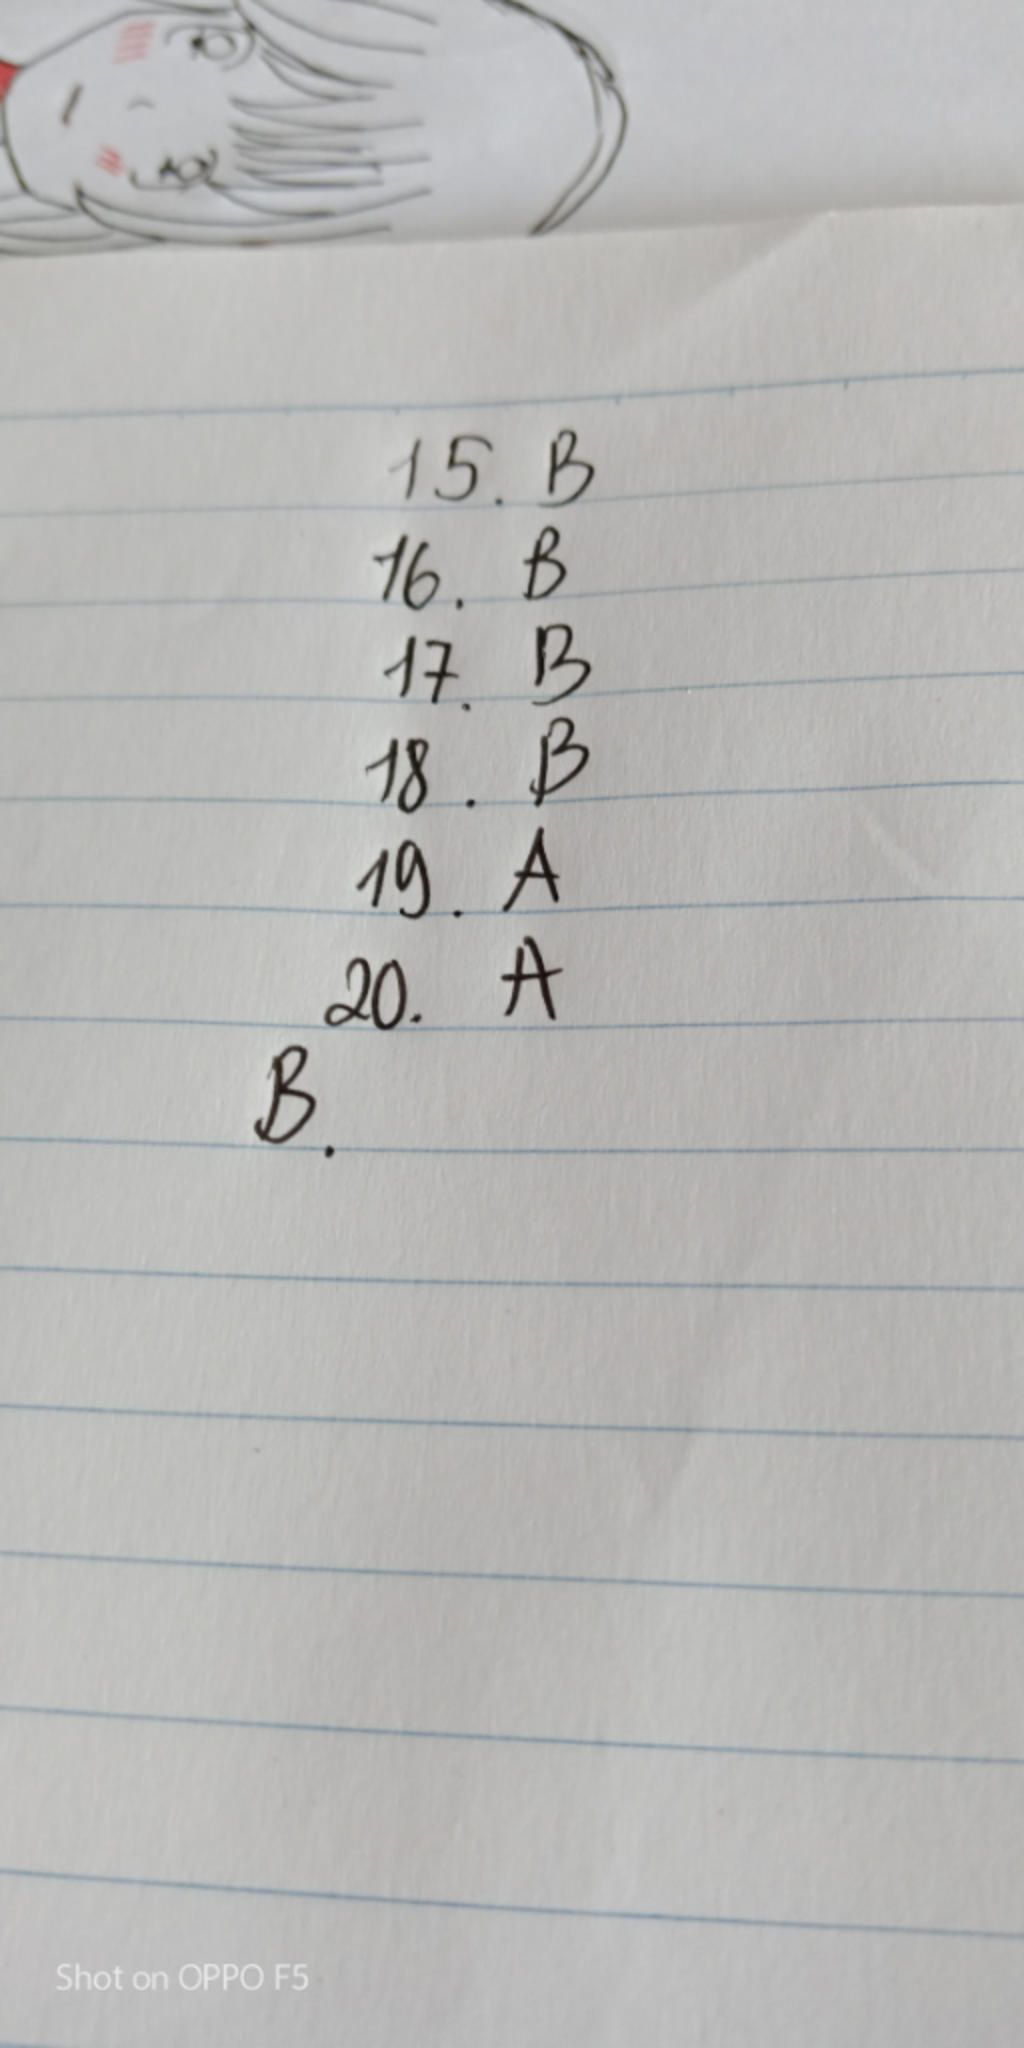 15. B
16. B
17. B
18. B
19. A
20. A
B.
Shot on OPPO F5